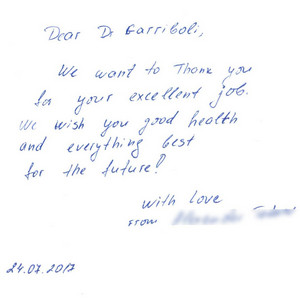 Dear Dr Garriboli,
We want to Thank you
for your excellent job.
We wish you good health
and everything best
for the future!
with Love
From
24.07.2017